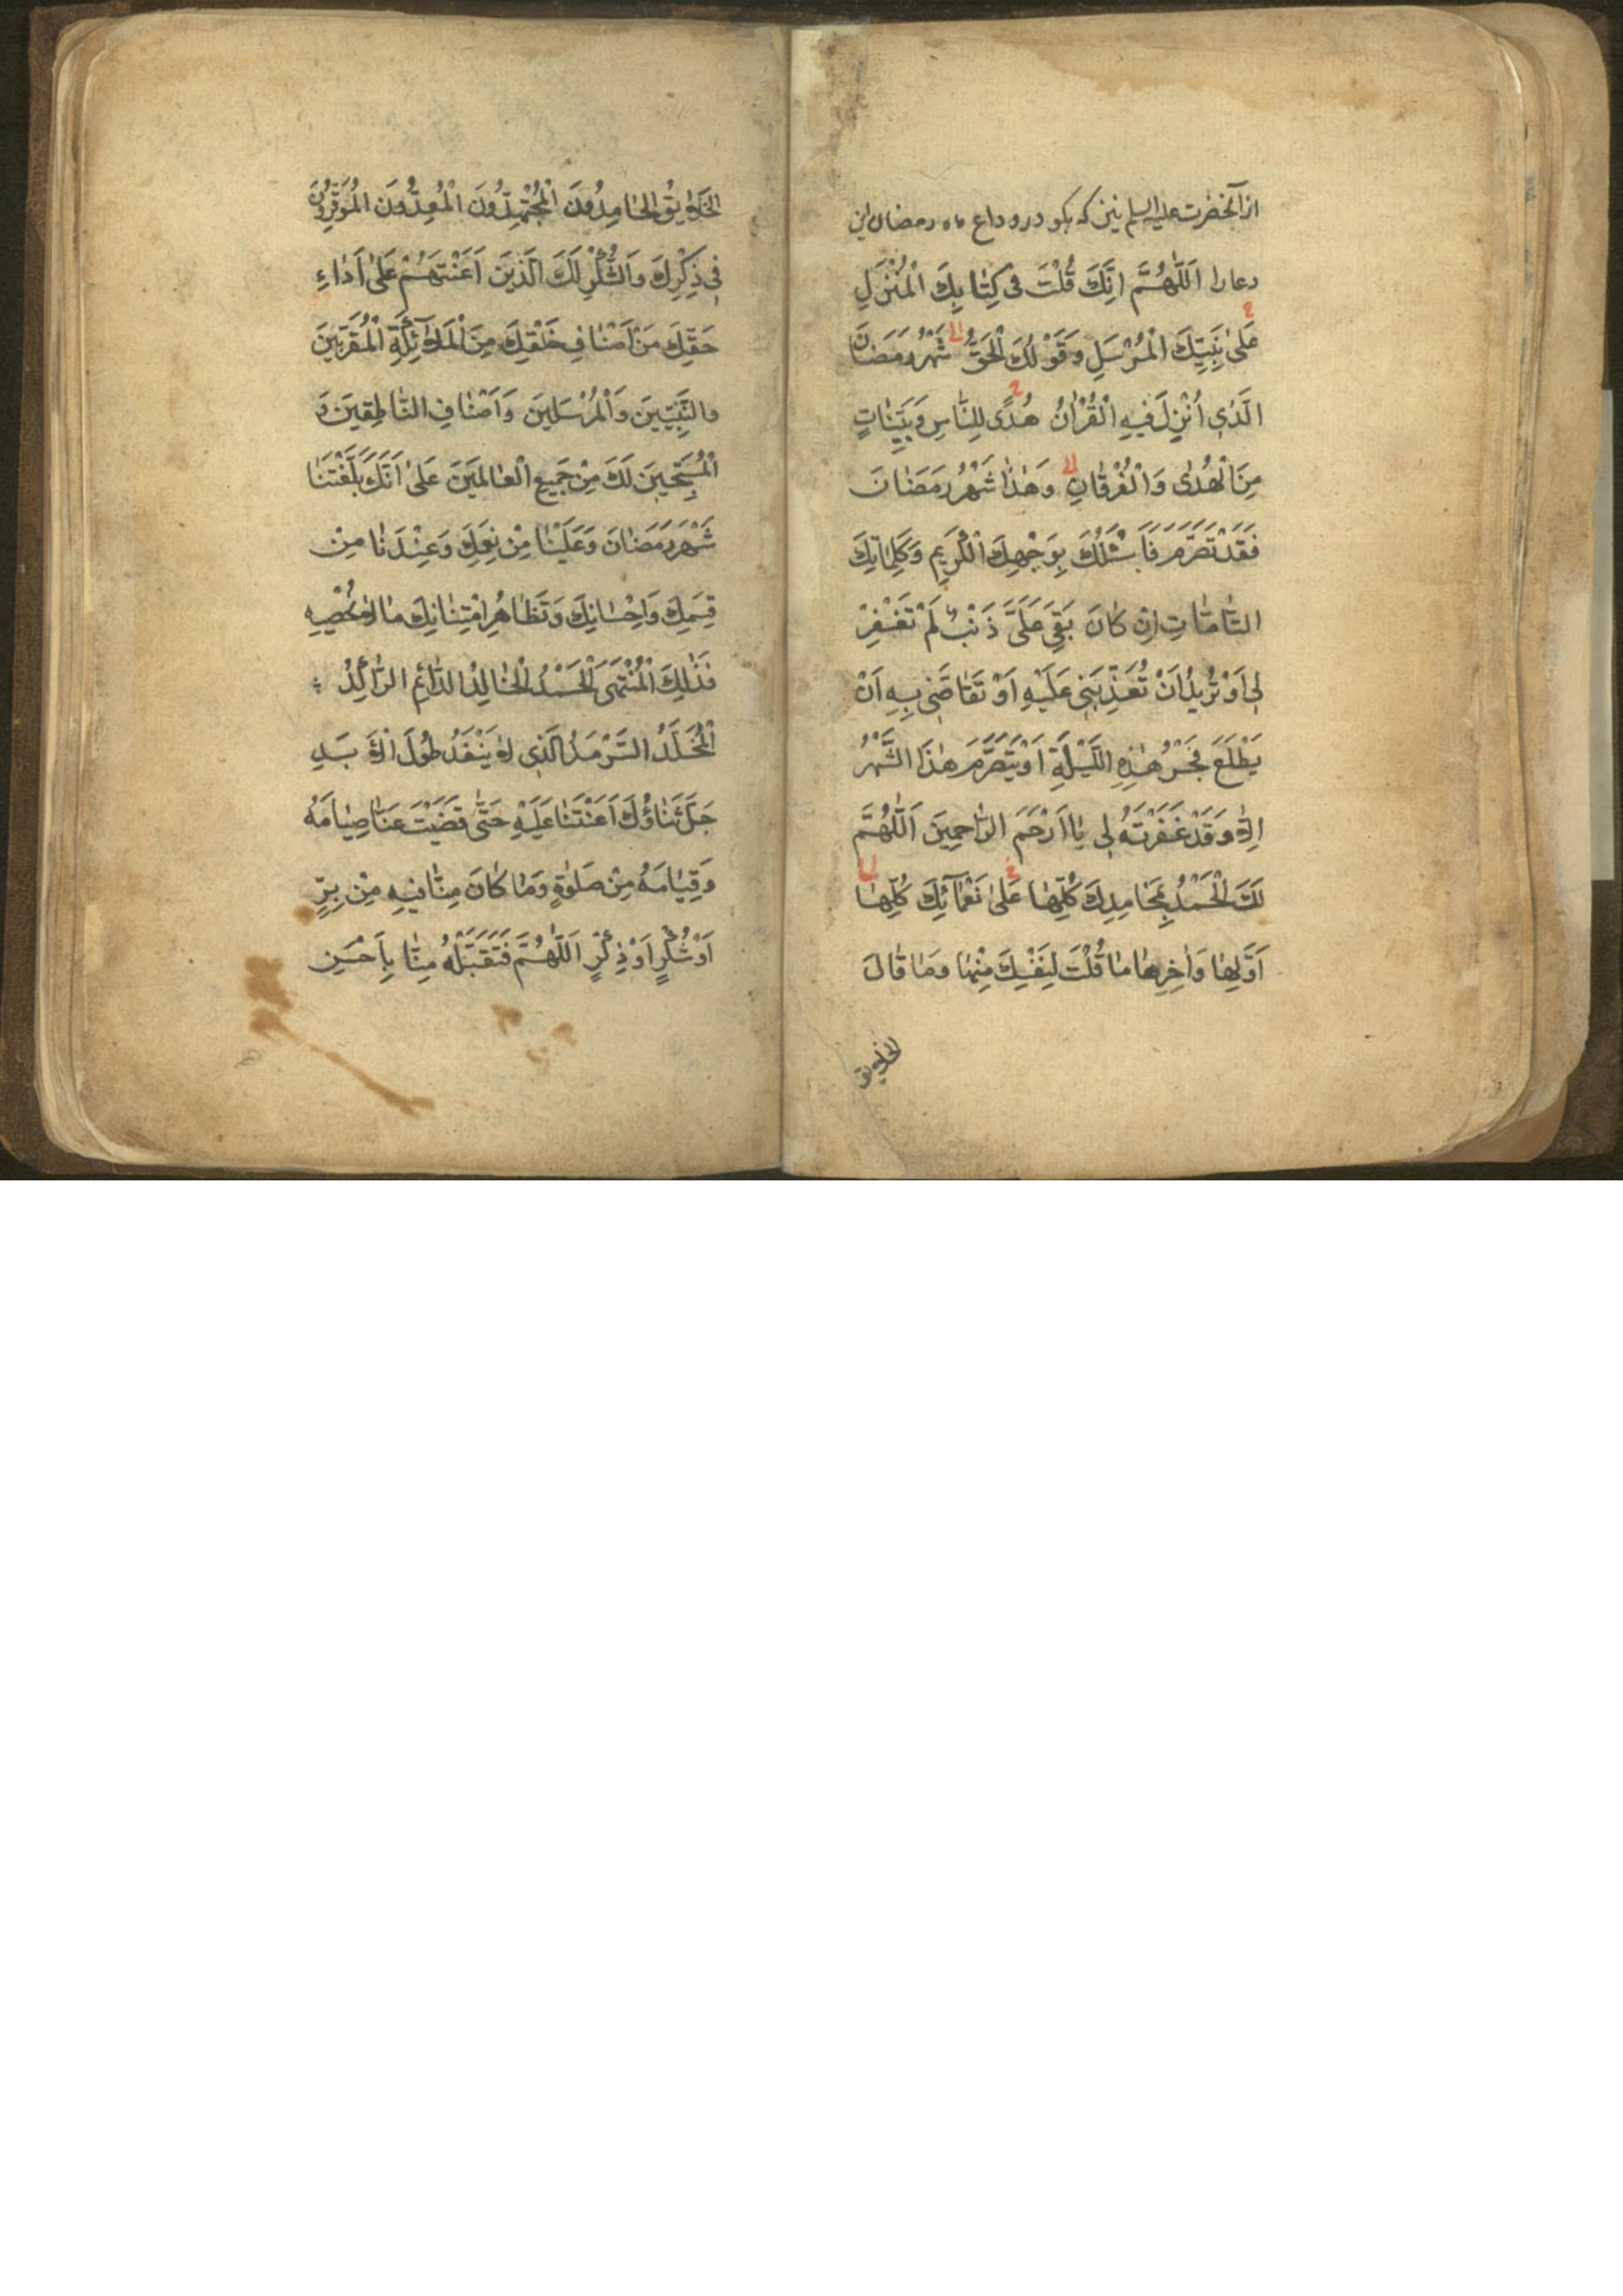 از آنحضرت علیه السلم نیز که بکو در وداع ماه رمضان این
دعا را اَللّٰهُمَّ اِنَّكَ قُلْتَ فى كِتٰابِكَ الْمُنْزَلِ
عَلىٰ نَبِيِّكَ الْمُرْسَلِ وَقَوْلُكَ الْحَقُّ شَهْرُ رَمَضٰانَ
الَّذى اُنْزِلَ فيهِ الْقُرْاٰنُ هُدًى لِلنّٰاسِ وَبَيِّنٰاتٍ
مِنَ الْهُدىٰ وَالْفُرْقٰانِ وَهٰذٰا شَهْرُ رَمَضٰانَ
فَقَدْ تَصَرَّمَ فَاَسْئَلُكَ بِوَجْهِكَ الْكَريمِ وَكَلِمٰاتِكَ
التّٰامّٰاتِ اِنْ كٰانَ بَقِىَ عَلَىَّ ذَنْبٌ لَمْ تَغْفِرْ
لى اَوْ تُريدُ اَنْ تُعَذِّبَنى عَلَيْهِ اَوْ تَقٰاصَّنى بِهِ اَنْ
يَطْلَعَ فَجْرُ هٰذِهِ اللَّيْلَةِ اَوْ يَتَصَرَّمَ هٰذَا الشَّهْرُ
اِلّٰا وَقَدْ غَفَرْتَهُ لى يٰا اَرْحَمَ الرّٰاحِمينَ اَللّٰهُمَّ
لَكَ الْحَمْدُ بِمَحٰامِدِكَ كُلِّهٰا عَلىٰ نَعْمٰآئِكَ كُلِّهٰا
اَوَّلِهٰا وَاٰخِرِهٰا مٰا قُلْتَ لِنَفْسِكَ مِنْهٰا وَمٰا قٰالَ
الخلایق
الْخَلٰايِقُ الْحٰامِدُونَ الْمُجْتَهِدُونَ الْمُعِدُّونَ الْمُوَقِّرُونَ
فى ذِكْرِكَ وَالشُّكْرِ لَكَ الَّذينَ اَعَنْتَهُمْ عَلىٰ اَدٰاءِ
حَقِّكَ مَنْ اَصْنٰافِ خَلْقِكَ مِنَ الْمَلٰآئِكَةِ الْمُقَرَّبينَ
والنَّبِيّينَ وَالْمُرْسَلينَ وَاَصْنٰافِ النّٰاطِقينَ وَ
الْمُسَبِّحينَ لَكَ مِنْ جَميعِ الْعٰالَمينَ عَلىٰ اَنَّكَ بَلَّغْتَنٰا
شَهْرَ رَمَضٰانَ وَعَلَيْنٰا مِنْ نِعَمِكَ وَعِنْدَنٰا مِنْ
قِسَمِكَ وَاِحْسٰانِكَ وَتَظٰاهُرِ امْتِنٰانِكَ مٰا لٰا نُحْصيهِ
فَذٰلِكَ الْمُنْتَهىٰ الْحَمْدُ الْخٰالِدُ الدّٰائِمُ الرّٰاكِدُ
الْمُخَلَّدُ السَّرْمَدُ الَّذى لٰا يَنْفَدُ طُولَ الْاَبَدِ
جَلَّ ثَنٰاؤُكَ اَعَنْتَنٰا عَلَيْهِ حَتّٰى قَضَيْتَ عَنّٰا صِيٰامَهُ
وَقِيٰامَهُ مِنْ صَلوٰةٍ وَمٰا كٰانَ مِنّٰا فيهِ مِنْ بِرٍّ
اَوْ شُكْرٍ اَوْ ذِكْرٍ اَللّٰهُمَّ فَتَقَبَّلْهُ مِنّٰا بِاَحْسَنِ